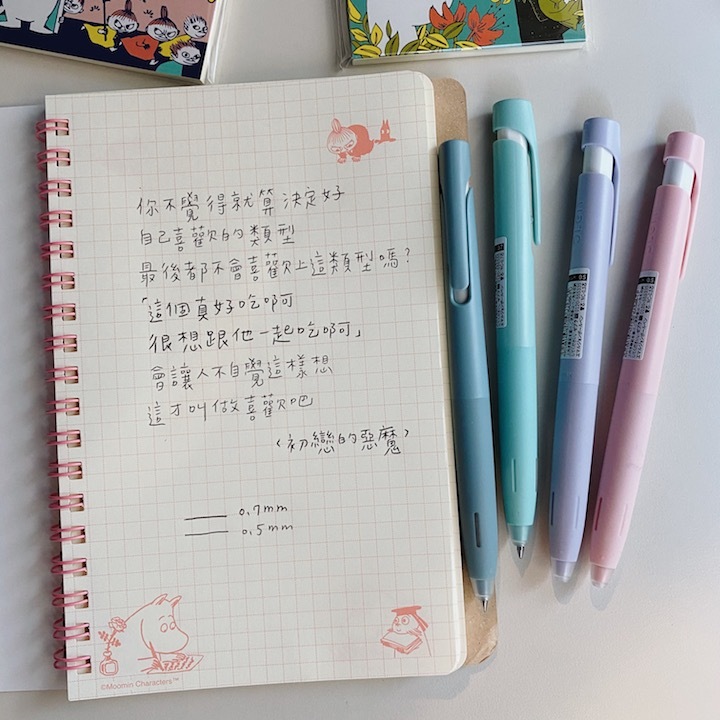 你不覺得就算決定好
自己喜歡的類型
最後都不會喜歡上這類型嗎?
「這個真好吃啊可
很想跟他一起吃啊可」
會讓人不自覺這樣想
這才叫做喜歡吧
〈初戀的惡魔〉
0.7mm
0.5mm
©Moomin Characters™